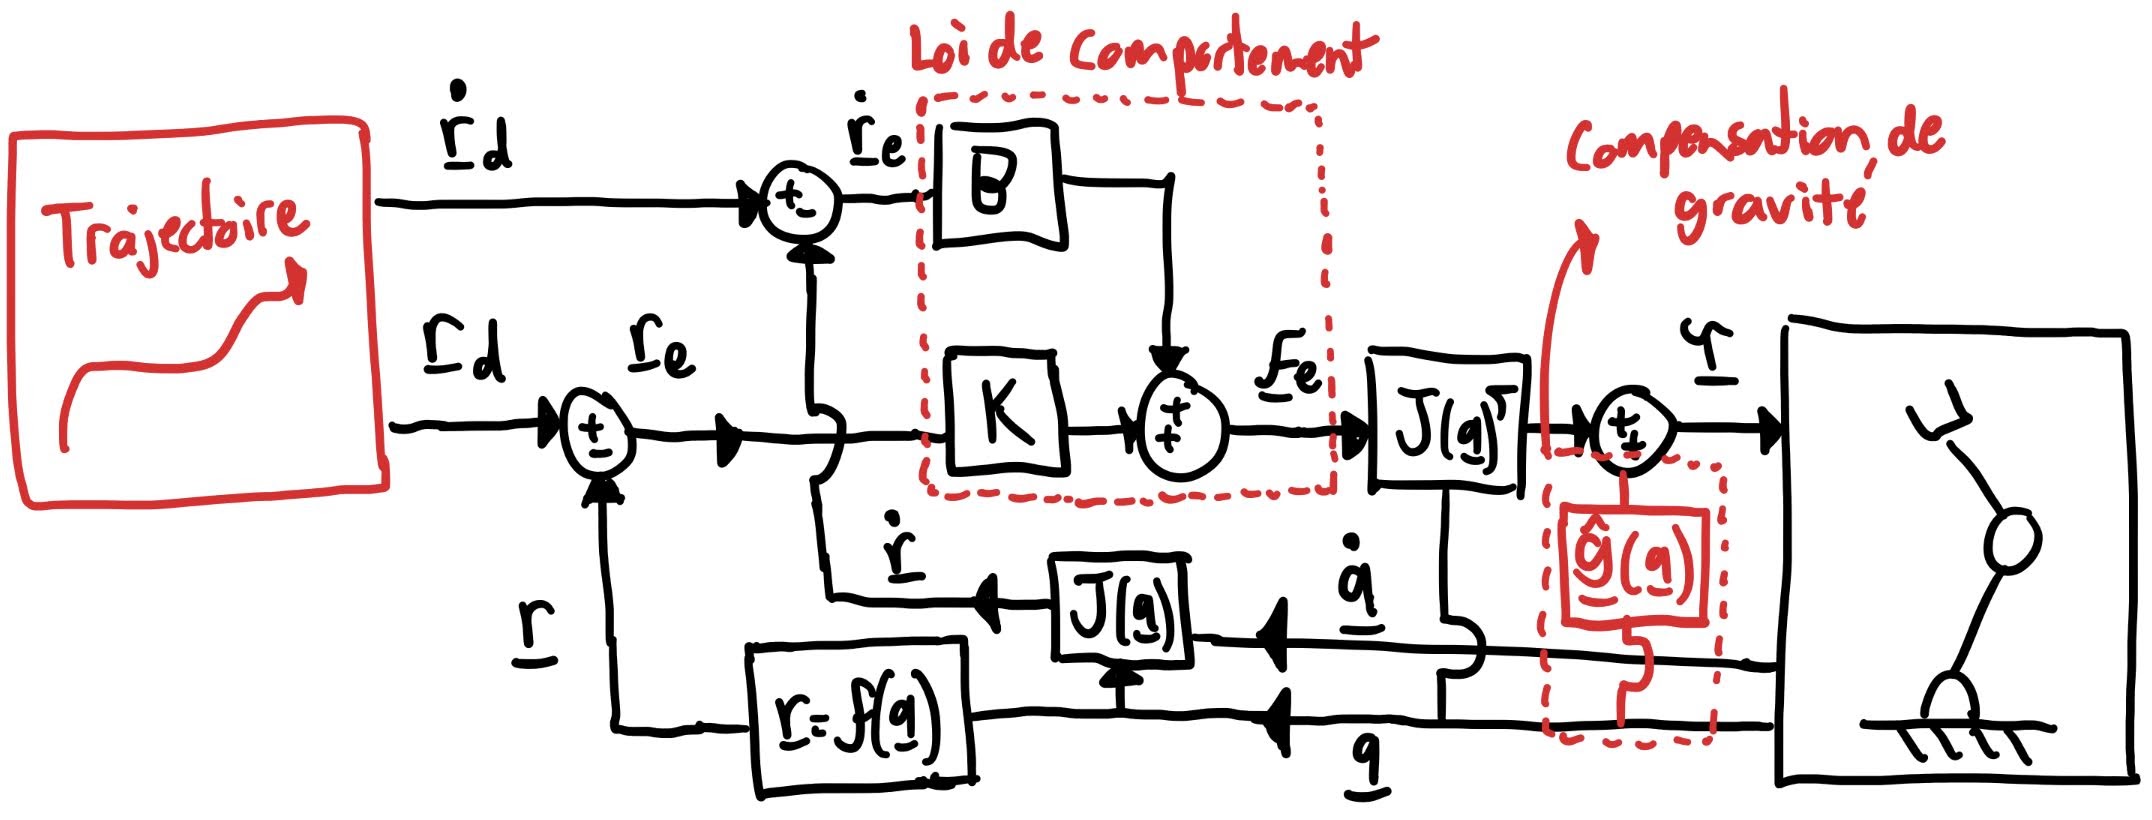 Loi de comportement
Compensation de
gravité
Trajectoire
ṙd
ṙe
B
rd
re
K
fe
J(q)ᵀ
τ
ĝ(q)
ṙ
J(q)
q̇
r
r = f(q)
q